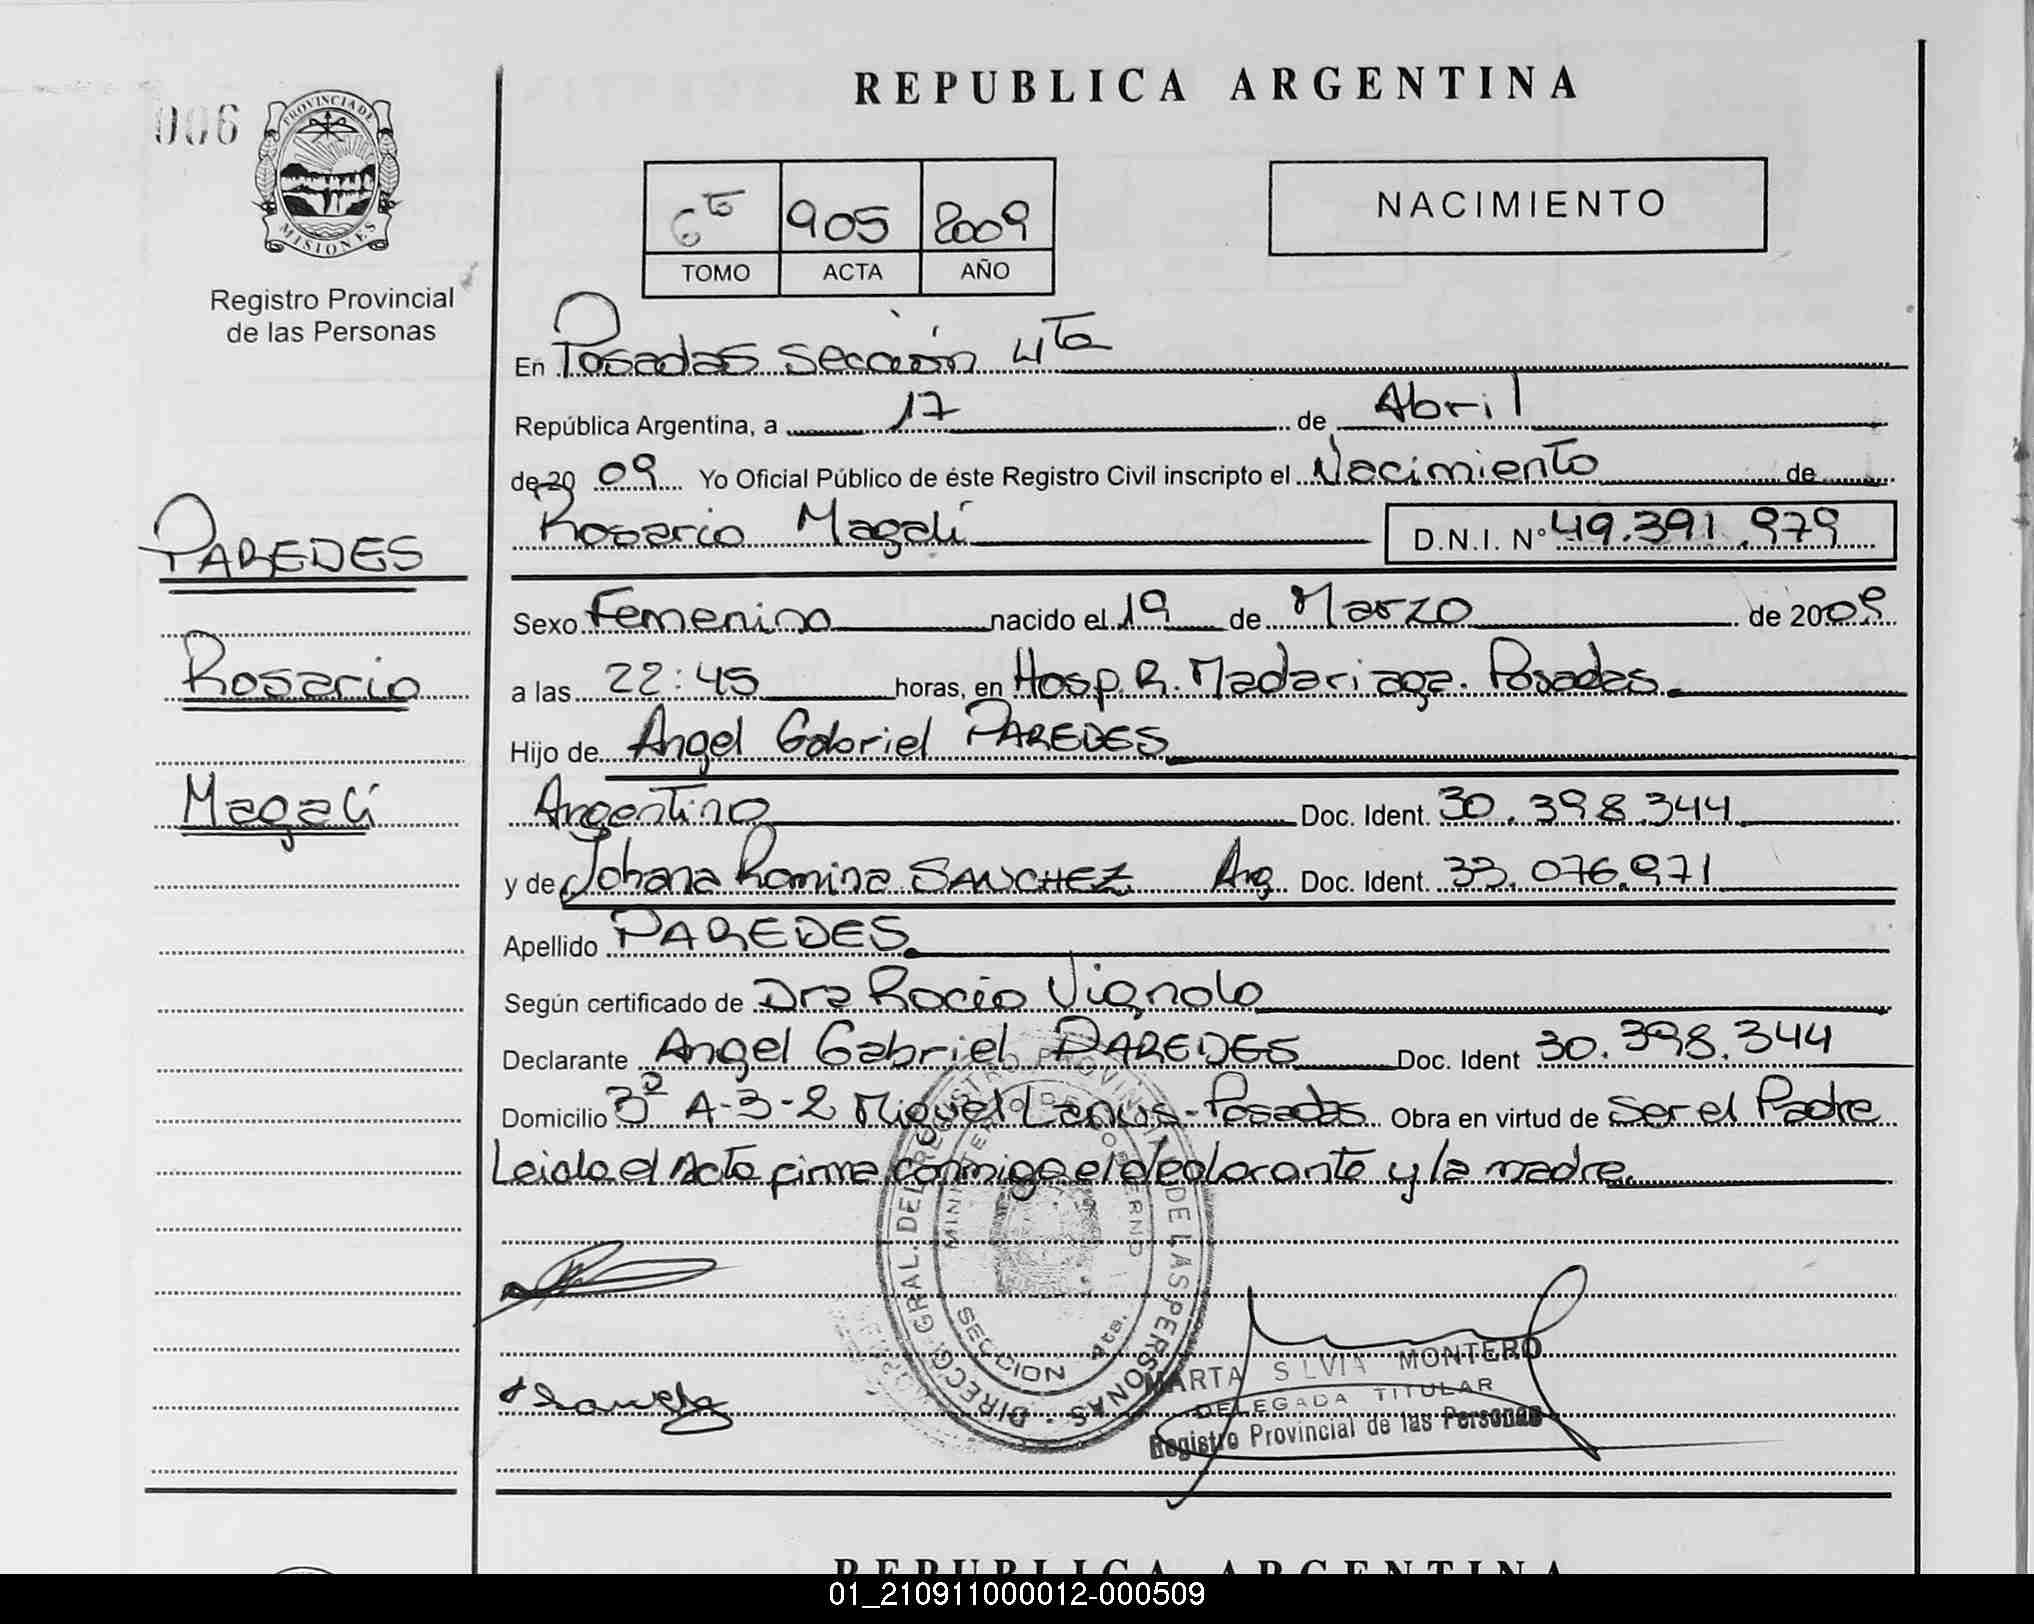 REPUBLICA ARGENTINA
006
PROVINCIA DE
MISIONES
Registro Provincial
de las Personas
6to 905 2009
TOMO ACTA AÑO
NACIMIENTO
En Posadas sección 4ta
República Argentina, a 17 de Abril
de 20 09 Yo Oficial Público de éste Registro Civil inscripto el Nacimiento de
Rosario Magalí D.N.I. N° 49.391.979
PAREDES
Rosario
Magalí
Sexo Femenino nacido el 19 de Marzo de 2009
a las 22:45 horas, en Hosp. R. Madariaga. Posadas.
Hijo de Angel Gabriel PAREDES
Argentino Doc. Ident. 30.398.344
y de Johana Romina SANCHEZ Arg. Doc. Ident. 33.076.971
Apellido PAREDES
Según certificado de Dra Rocio Vignolo
Declarante Angel Gabriel PAREDES Doc. Ident 30.398.344
Domicilio A-3-2 Miguel Lanus-Posadas Obra en virtud de Ser el Padre
Leida el Acta firma conmigo el declarante y la madre.
DIRECC. GRAL. DEL REGISTRO PROVINCIAL DE LAS PERSONAS
MINISTERIO DE GOBIERNO
SECCION 4ta.
MARTA SILVIA MONTERO
DELEGADA TITULAR
Registro Provincial de las Personas
REPUBLICA ARGENTINA
01_210911000012-000509